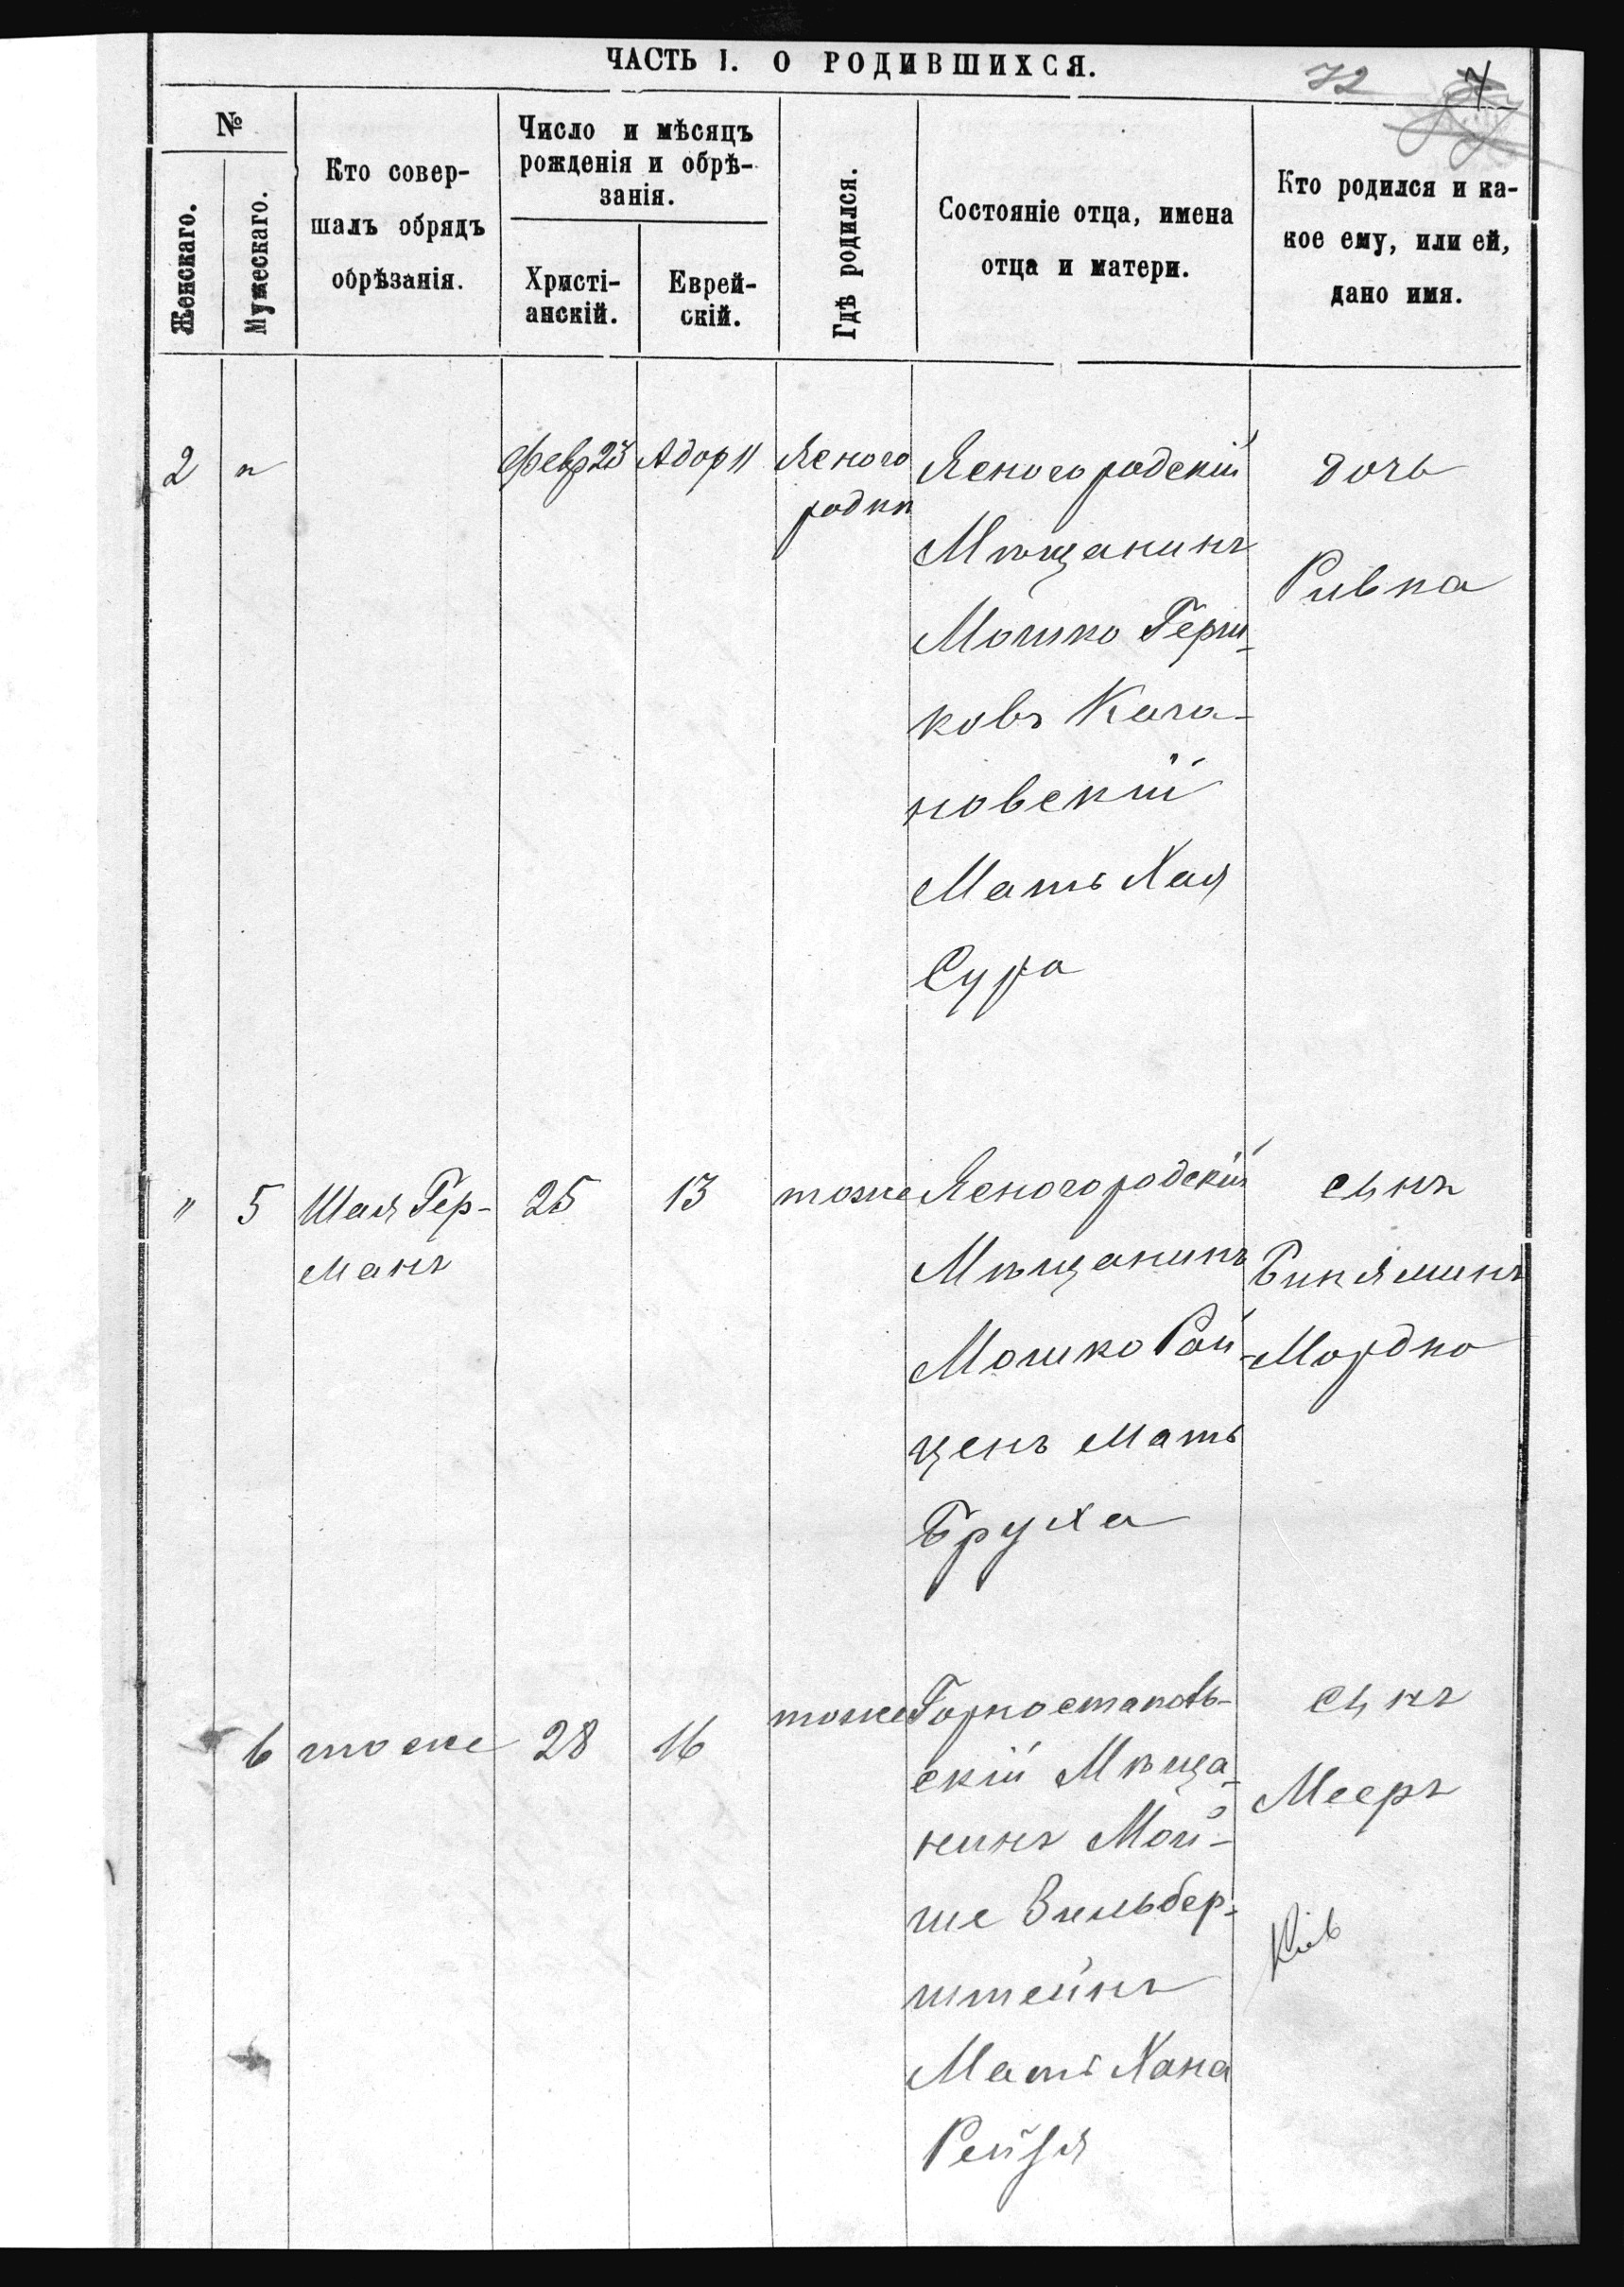 ЧАСТЬ I. О РОДИВШИХСЯ.
72
№
Женскаго.
Мужескаго.
Кто совер-
шалъ обрядъ
обрѣзанія.
Число и мѣсяцъ
рожденія и обрѣ-
занія.
Христі-
анскій.
Еврей-
скій.
Гдѣ родился.
Состояніе отца, имена
отца и матери.
Кто родился и ка-
кое ему, или ей,
дано имя.
2 "
Февр 23
Адор 11
Ясного
родки
Ясногородскій
Мѣщанинъ
Мошко Герш-
ковъ Кага-
новскій
Мать Хая
Сура
дочь
Ривка
" 5
Шая Гер-
манъ
25
13
тоже
Ясногородскій
Мѣщанинъ
Мошко Рай-
ценъ Мать
Бруха
сынъ
Биняминъ
Мордко
6
тоже
28
16
тоже
Горностайпов-
скій Мѣща-
нинъ Мой-
ше Зильбер-
штейнъ
Мать Хана
Рейзя
сынъ
Мееръ